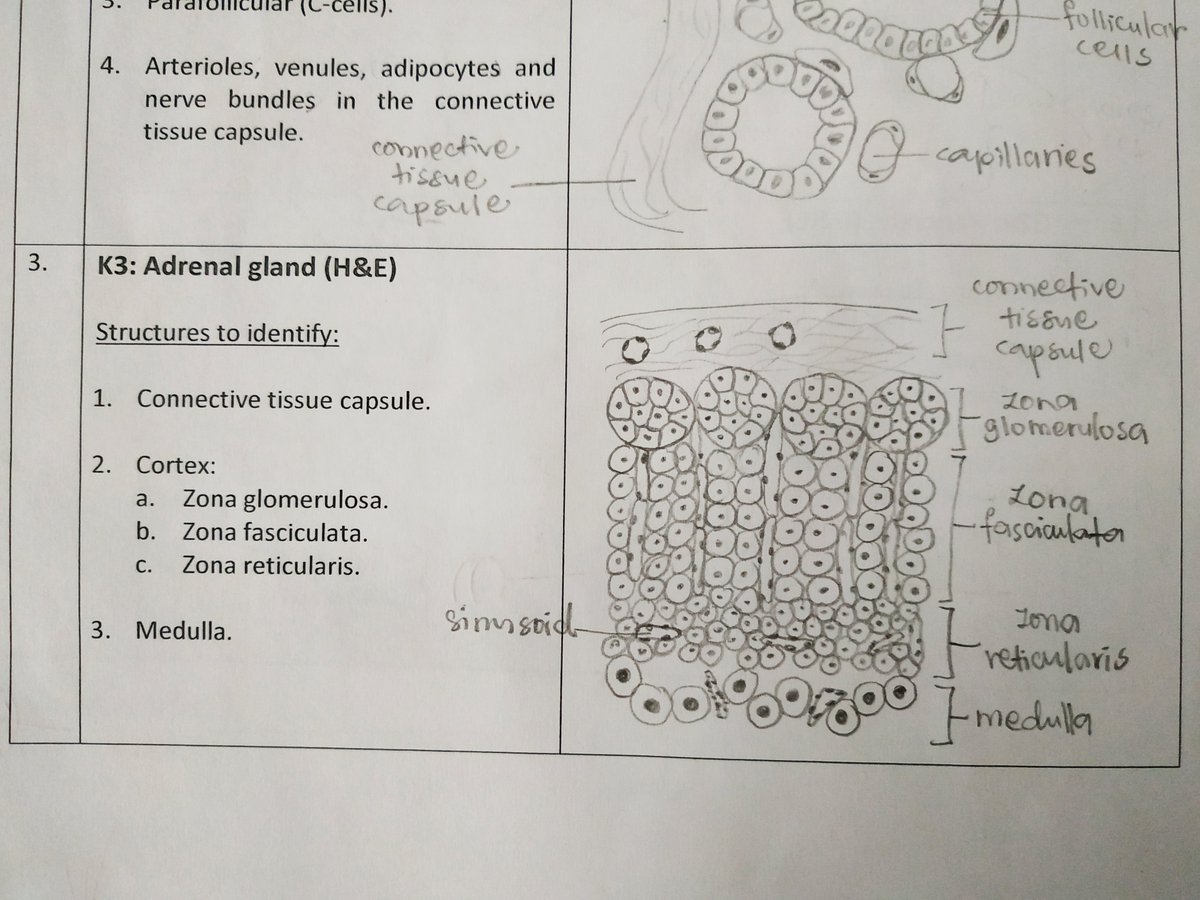 3. Parafollicular (C-cells).
4. Arterioles, venules, adipocytes and
nerve bundles in the connective
tissue capsule.
connective
tissue
capsule
follicular
cells
capillaries
3.
K3: Adrenal gland (H&E)
Structures to identify:
1. Connective tissue capsule.
2. Cortex:
a. Zona glomerulosa.
b. Zona fasciculata.
c. Zona reticularis.
3. Medulla.
sinusoid
connective
tissue
capsule
zona
glomerulosa
zona
fasciculata
zona
reticularis
medulla